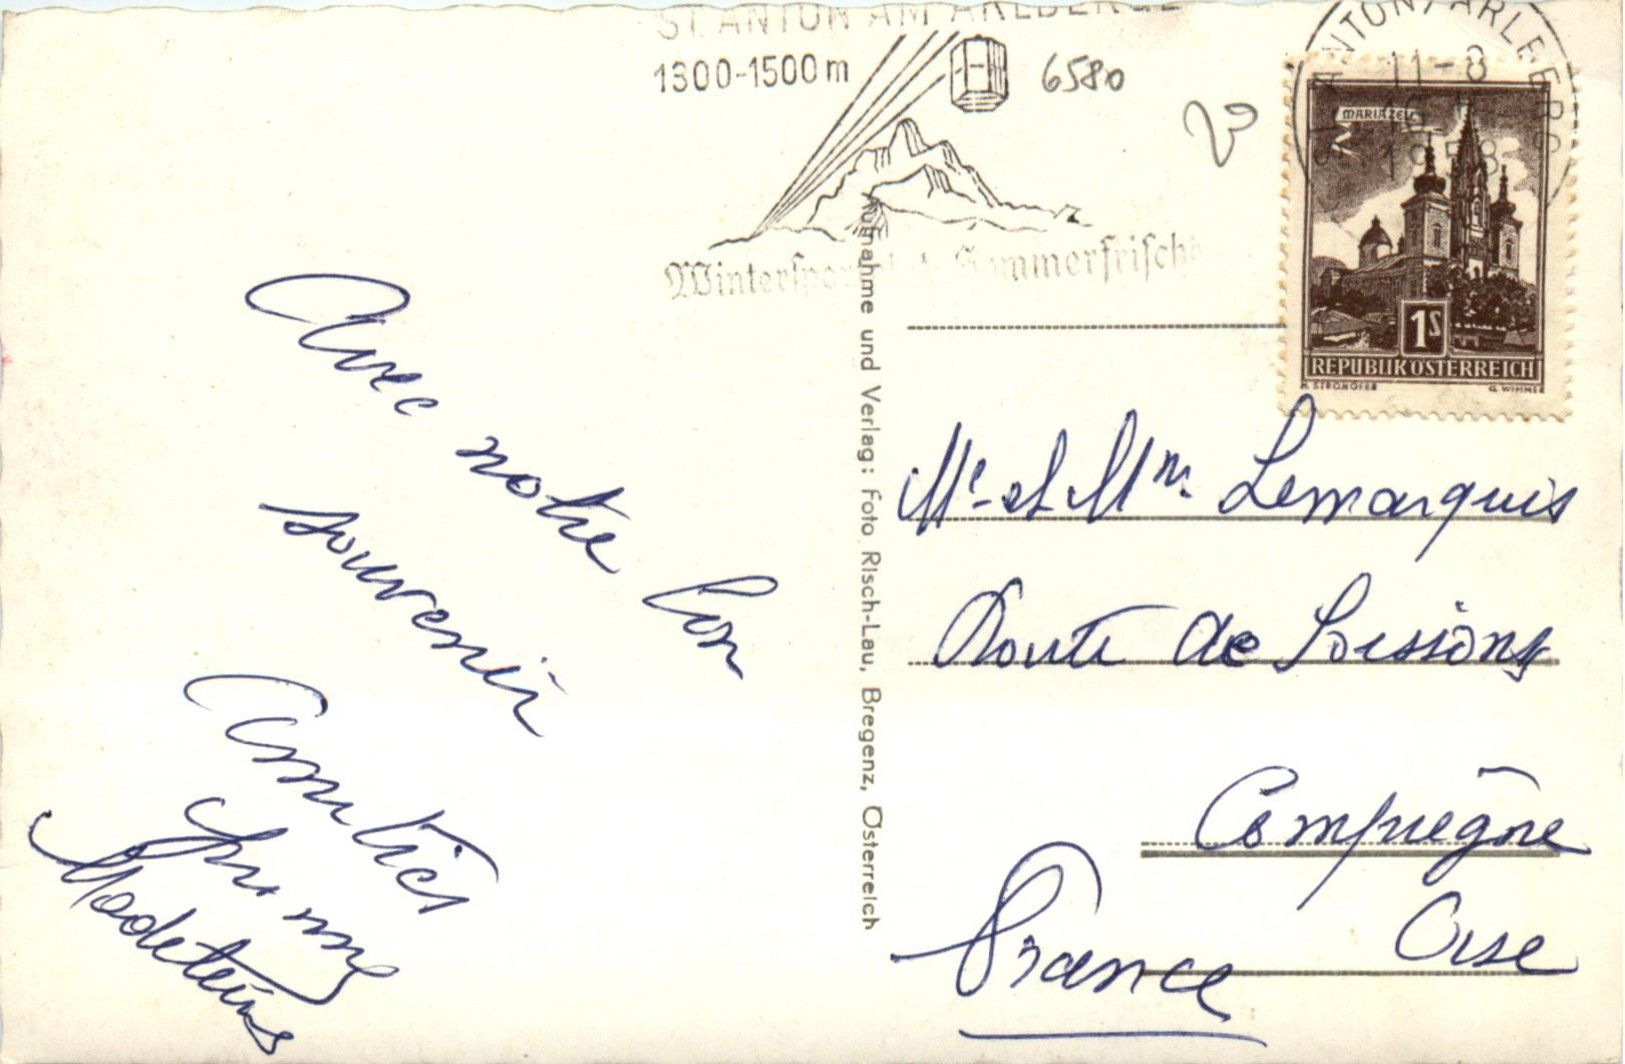 ST. ANTON AM ARLBERG
1300-1500 m
6580
ANTON / ARLBERG
11-8
1958
MARIAZELL
1S
REPUBLIK ÖSTERREICH
G. WIMMER
Avec notre bon
souvenir
Amitiés
Aufnahme und Verlag: Foto Risch-Lau, Bregenz, Österreich
Mr et Mme Lemarquis
Route de Soissons
Compiègne
Oise
France